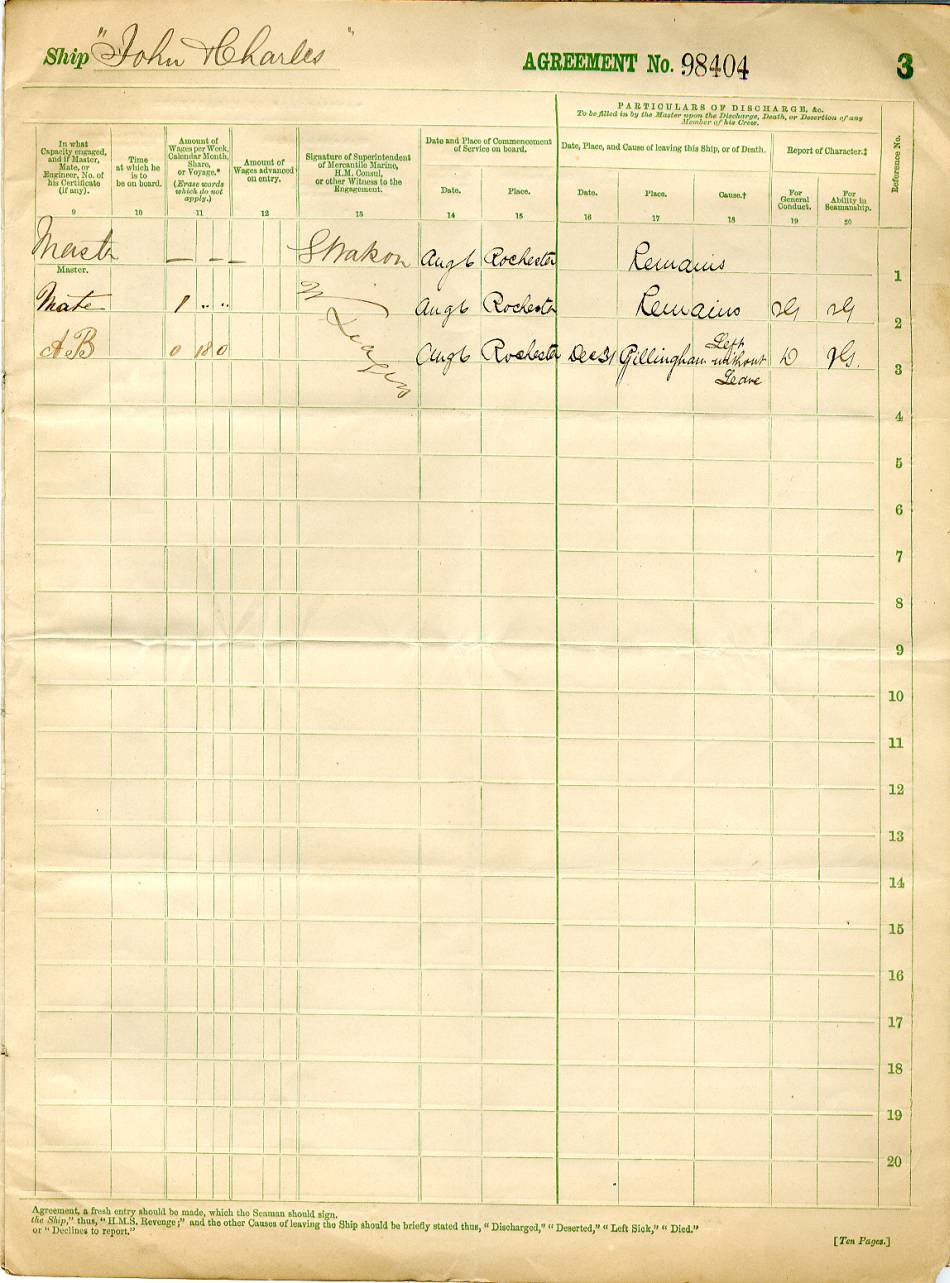 Ship "John & Charles" AGREEMENT No. 98404 3
PARTICULARS OF DISCHARGE, &c.
To be filled in by the Master upon the Discharge, Death, or Desertion of any
Member of his Crew.
In what
Capacity engaged,
and if Master,
Mate, or
Engineer, No. of
his Certificate
(if any).
9
Time
at which he
is to
be on board.
10
Amount of
Wages per Week,
Calendar Month,
Share,
or Voyage.*
(Erase words
which do not
apply.)
11
Amount of
Wages advanced
on entry.
12
Signature of Superintendent
of Mercantile Marine,
H.M. Consul,
or other Witness to the
Engagement.
13
Date and Place of Commencement
of Service on board.
Date. Place.
14 15
Date, Place, and Cause of leaving this Ship, or of Death.
Date. Place. Cause.†
16 17 18
Report of Character.‡
For
General
Conduct.
19
For
Ability in
Seamanship.
20
Reference No.
Master — — — Aug 6 Rochester Remains 1
Master.
Mate 1 " " W Aug 6 Rochester Remains VG VG 2
AB 0 18 0 Aug 6 Rochester Dec 31 Gillingham Left without Leave D VG. 3
4
5
6
7
8
9
10
11
12
13
14
15
16
17
18
19
20
Agreement, a fresh entry should be made, which the Seaman should sign.
the Ship," thus, "H.M.S. Revenge;" and the other Causes of leaving the Ship should be briefly stated thus, "Discharged," "Deserted," "Left Sick," "Died."
or "Declines to report."
[Ten Pages.]